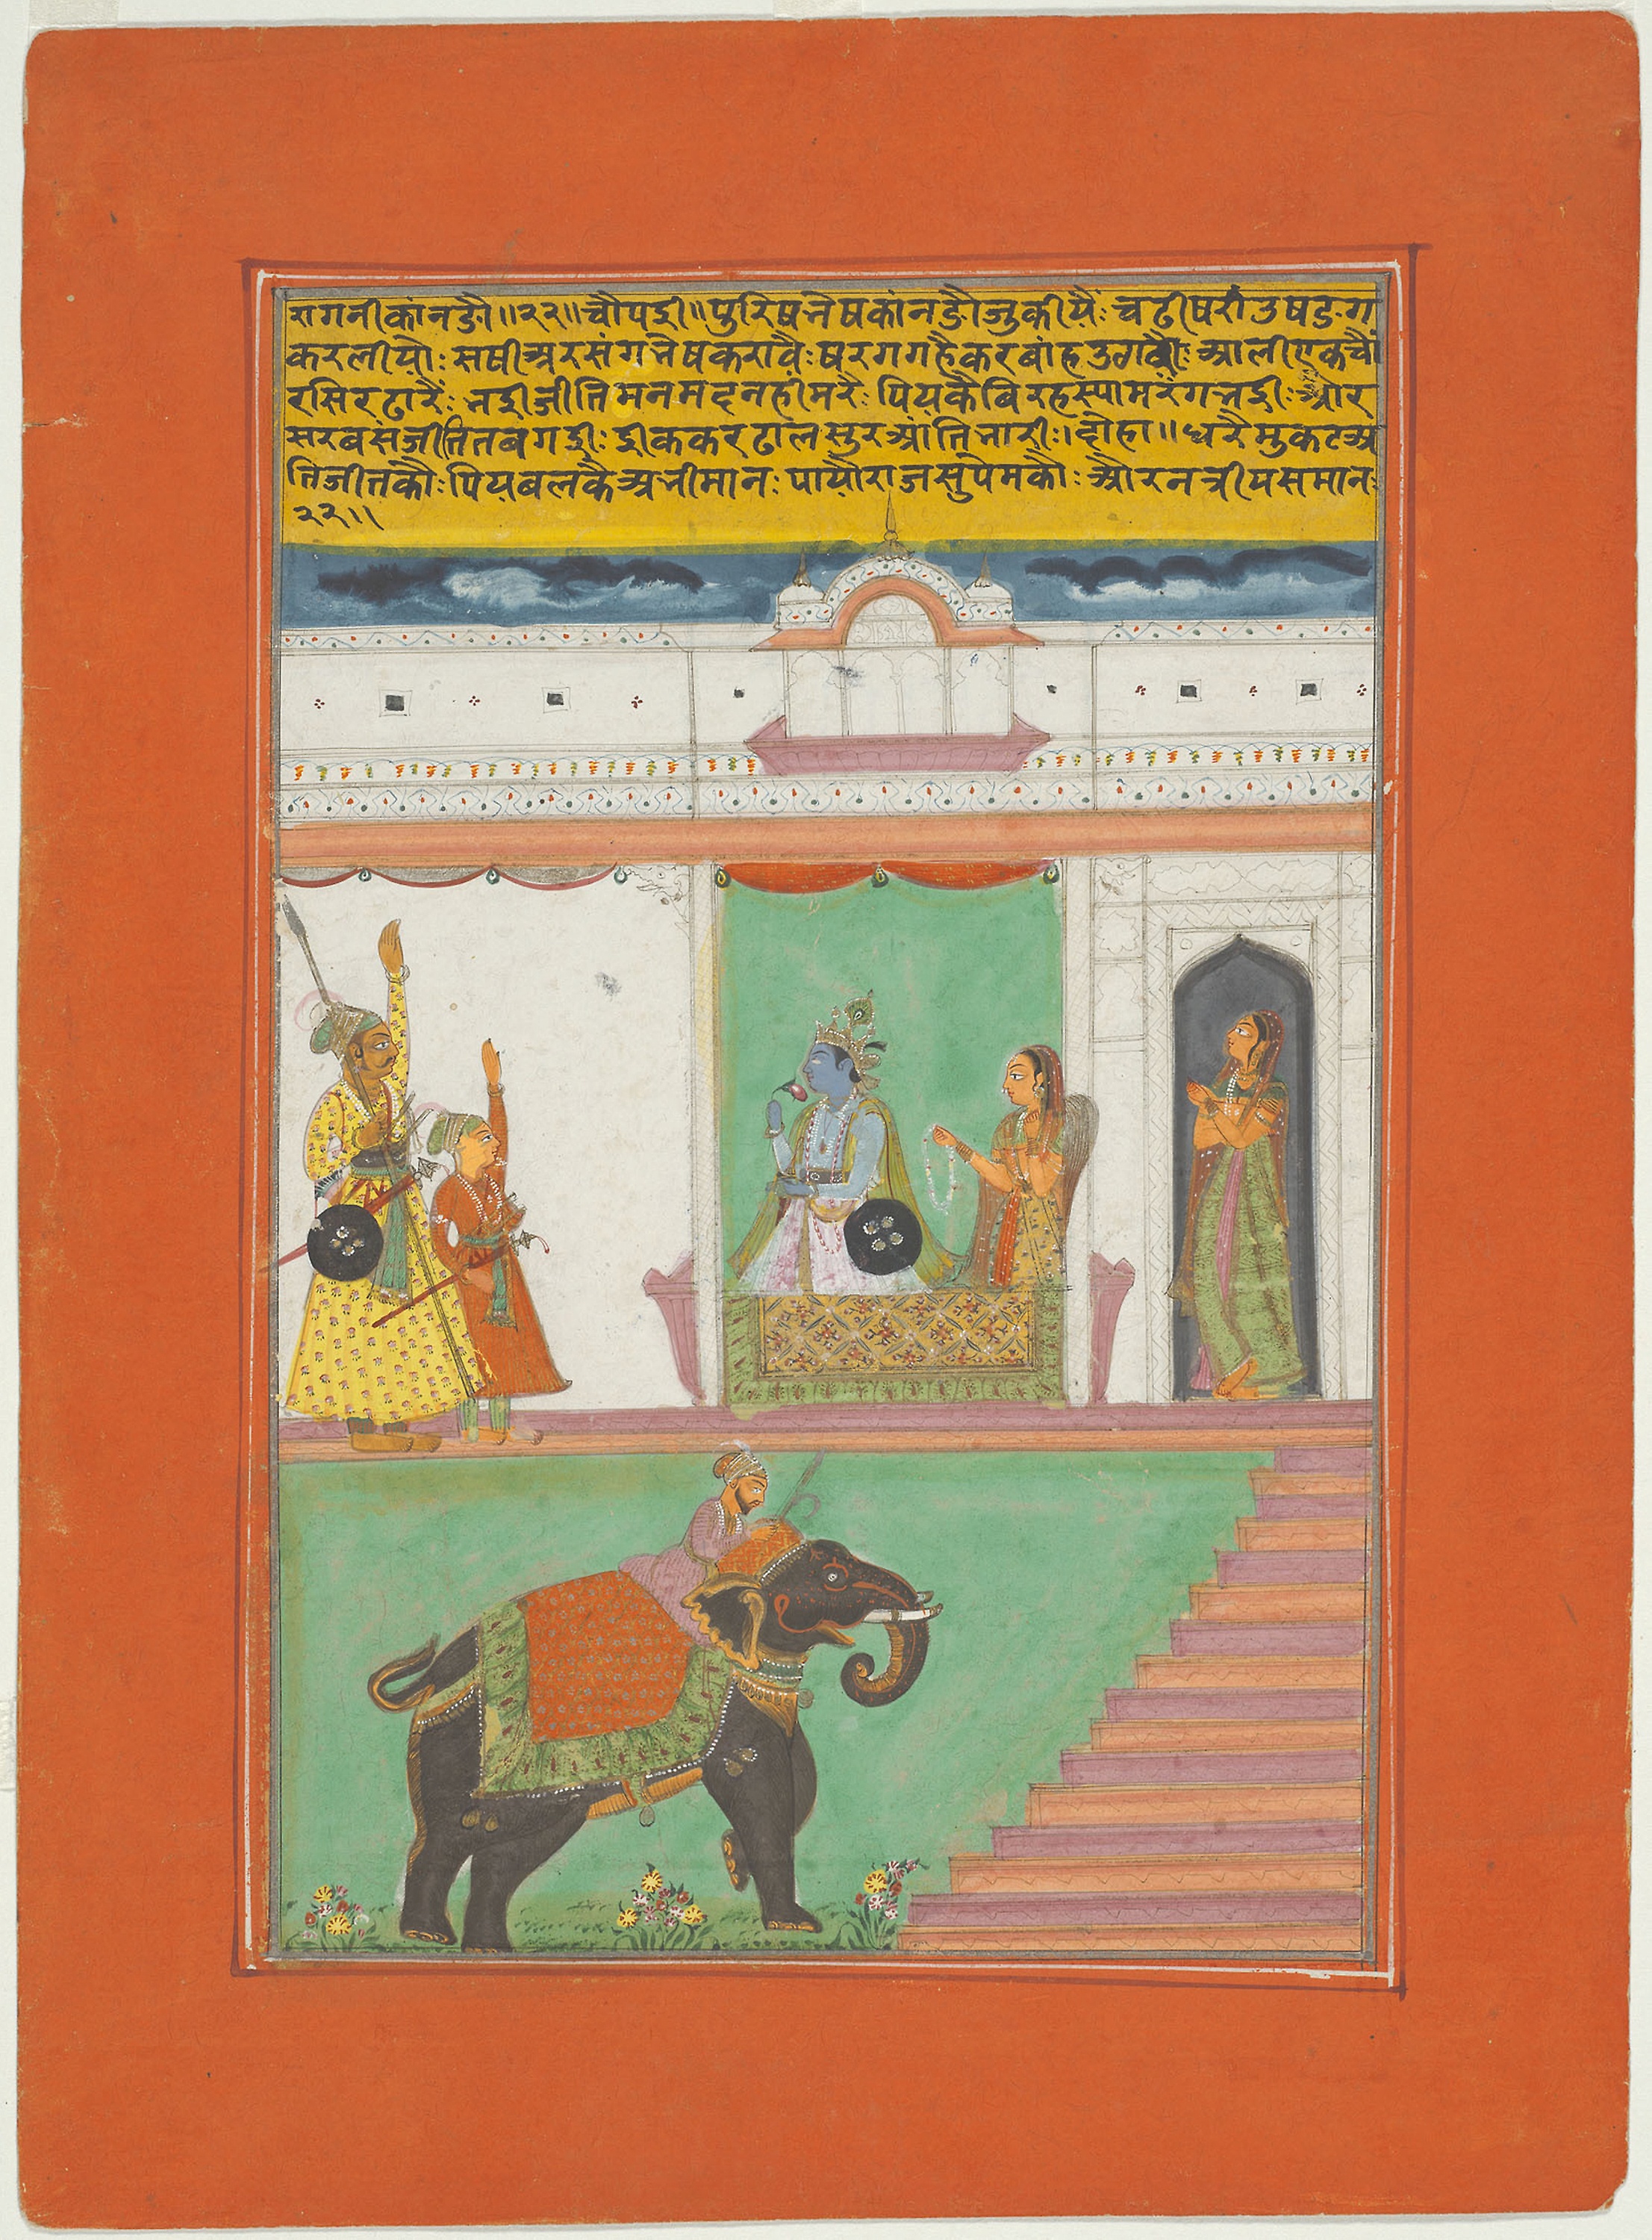 रागनीकांनडौ॥२२॥चौपई॥पुरिषनेषकांनडौजुकीयैः चढीषरांउषडग
करलीयौः सषीअरसंगनेषकरावैः षरगगहैकरबांह आलीएकचौं
रसिरढारैः नईजीतिमनमदनहीमरैः पियकैबिरहस्यामरंगनईः और
सरबसंजीतितबंगईः ईककरढालसुरआंतिनारीः।दोहा॥धरैमुकटअ
तिजीतकौः पियबलकैअनीमानः पायौराजसुपेमकौः औरनत्रीयसमानः
२२॥